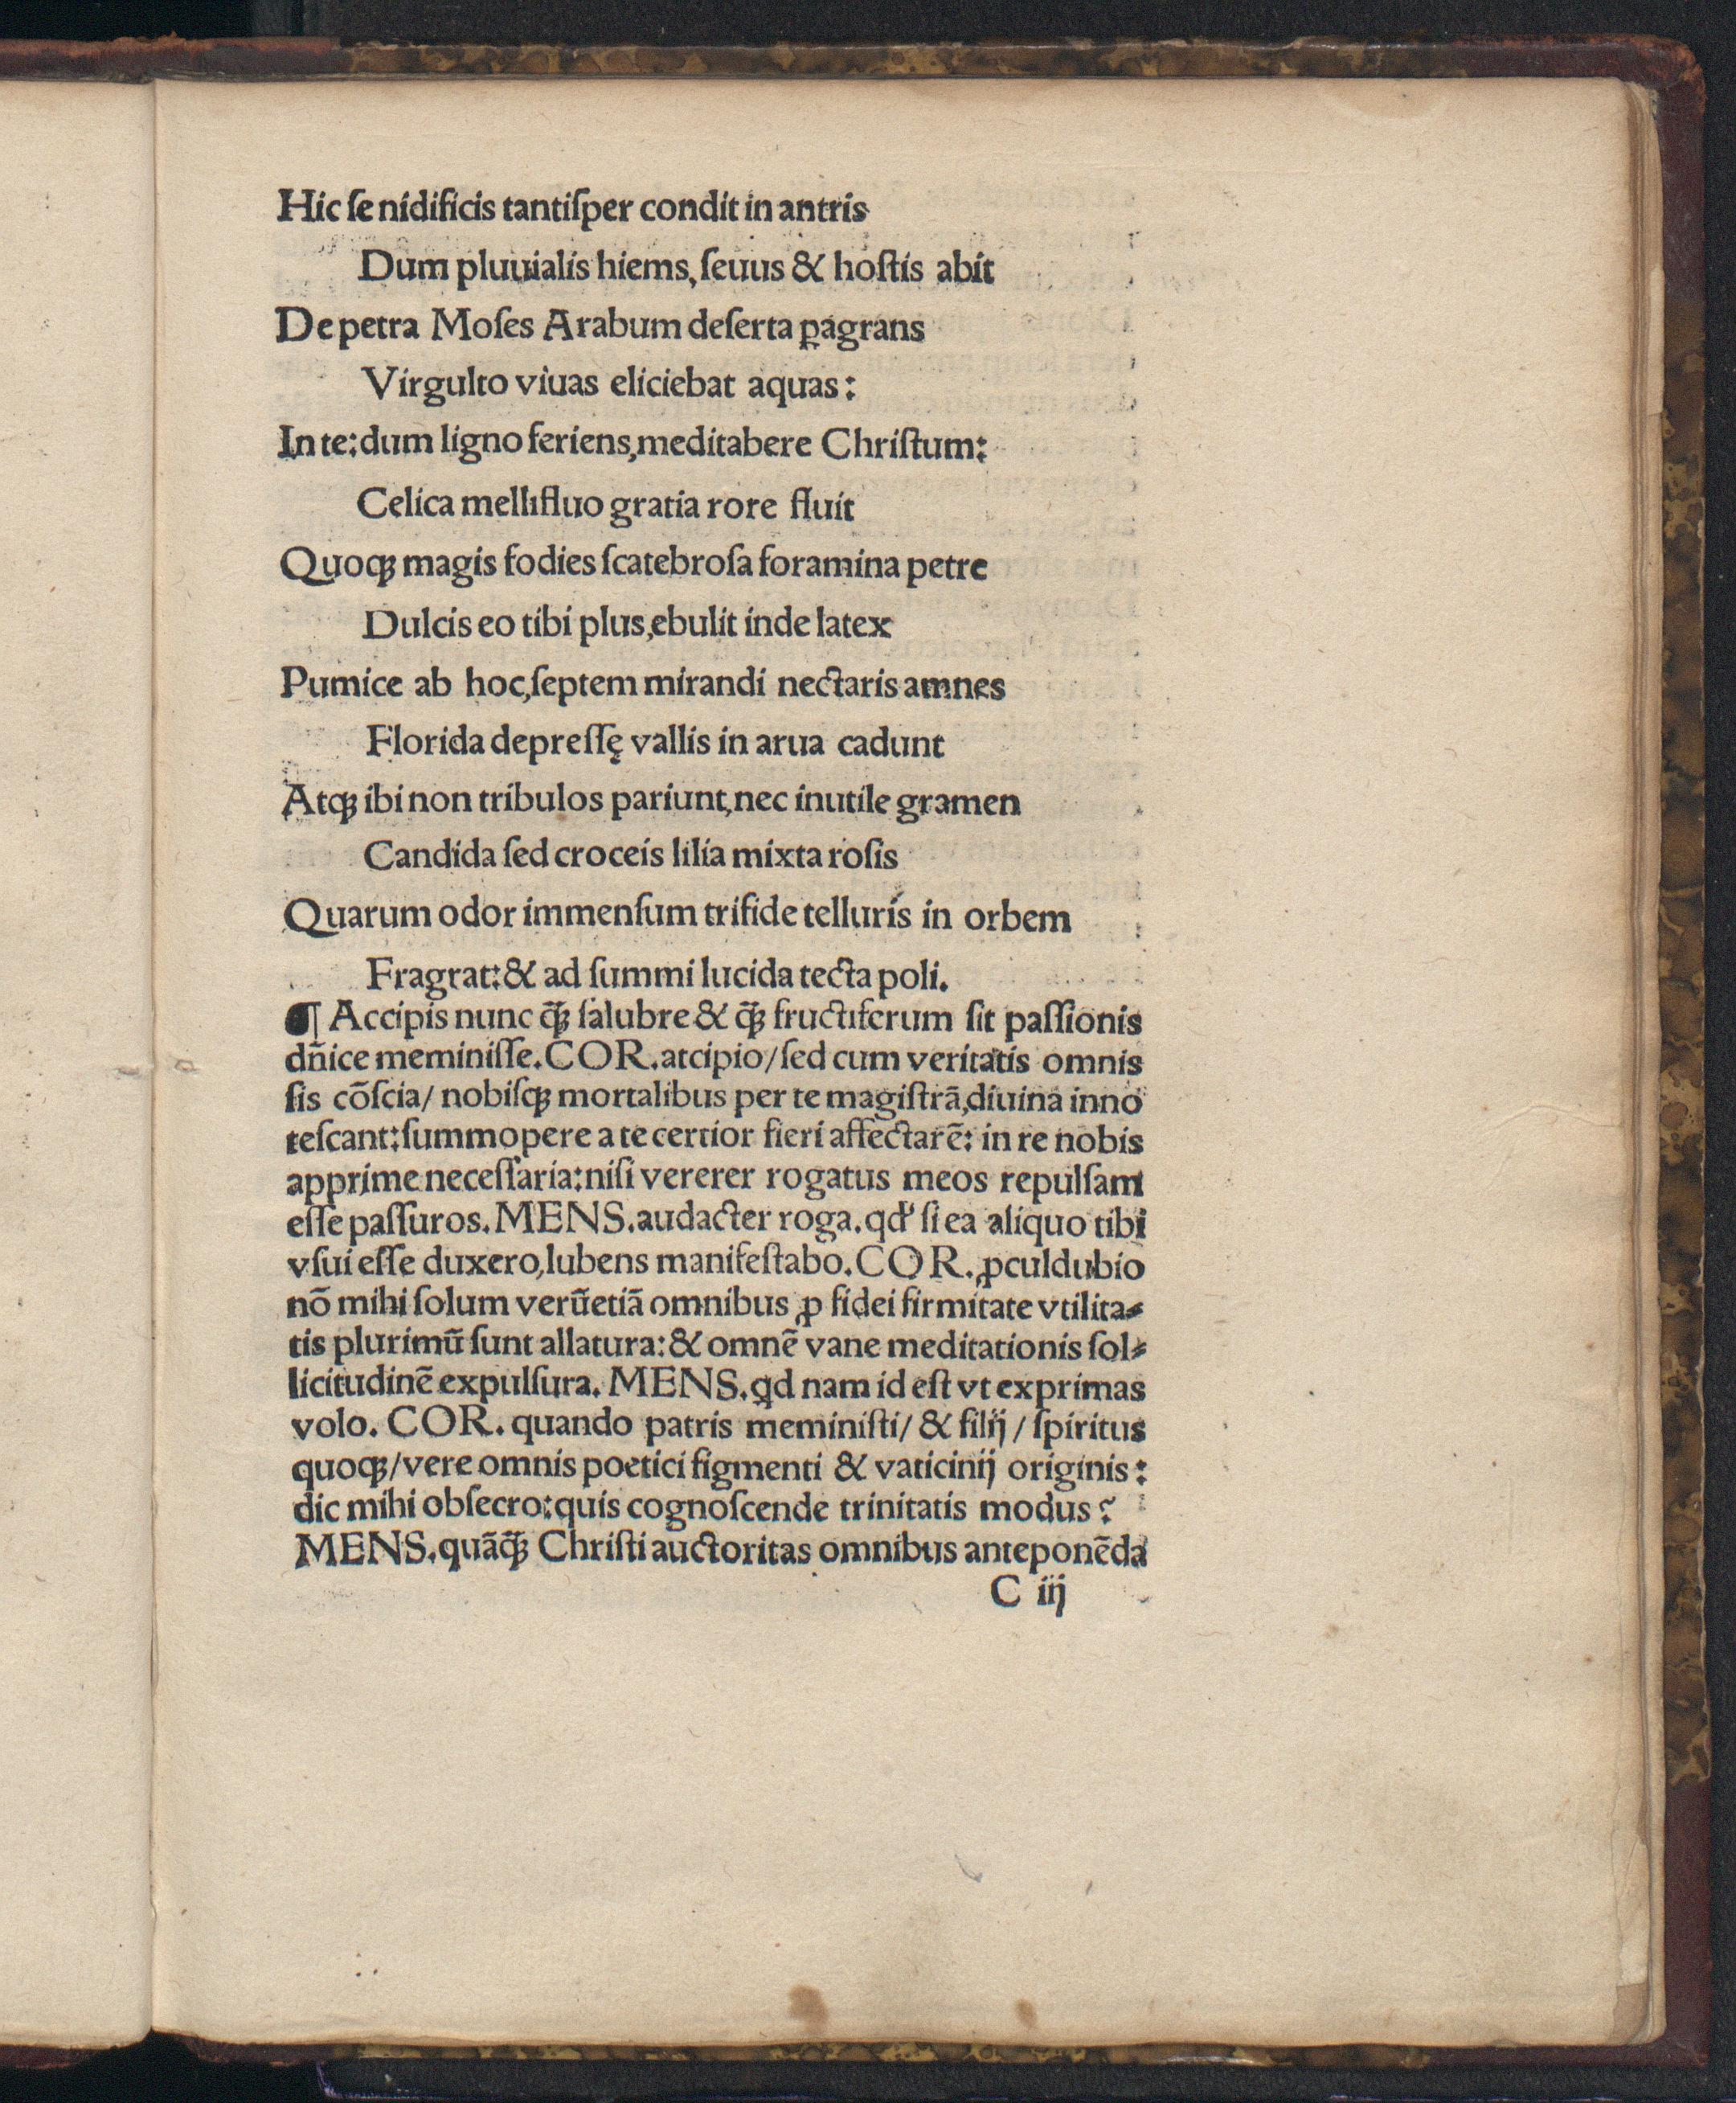 Hic ſe nidificis tantiſper condit in antris
Dum pluuialis hiems, ſeuus & hoſtis abit
De petra Moſes Arabum deſerta ꝑagrans
Virgulto viuas eliciebat aquas:
In te: dum ligno feriens, meditabere Chriſtum:
Celica mellifluo gratia rore fluit
Quoqꝫ magis fodies ſcatebroſa foramina petre
Dulcis eo tibi plus, ebulit inde latex
Pumice ab hoc, ſeptem mirandi nectaris amnes
Florida depreſſę vallis in arua cadunt
Atqꝫ ibi non tribulos pariunt, nec inutile gramen
Candida ſed croceis lilia mixta roſis
Quarum odor immenſum trifide telluris in orbem
Fragrat: & ad ſummi lucida tecta poli.
¶ Accipis nunc q̃ꝫ ſalubre & q̃ꝫ fructiferum ſit paſſionis
dñice meminiſſe. COR. atcipio/ ſed cum veritatis omnis
ſis cõſcia/ nobiſqꝫ mortalibus per te magiſtrã, diuina inno
teſcant: ſummopere a te certior fieri affectarẽ: in re nobis
apprime neceſſaria: niſi vererer rogatus meos repulſam
eſſe paſſuros. MENS. audacter roga. qď ſi ea aliquo tibi
vſui eſſe duxero, lubens manifeſtabo. COR. ꝓculdubio
nõ mihi ſolum verũetiã omnibus ꝓ fidei firmitate vtilita⸗
tis plurimũ ſunt allatura: & omnẽ vane meditationis ſol⸗
licitudinẽ expulſura. MENS. ꝗd nam id eſt vt exprimas
volo. COR. quando patris meminiſti/ & filij / ſpiritus
quoqꝫ/ vere omnis poetici figmenti & vaticinij originis:
dic mihi obſecro: quis cognoſcende trinitatis modus?
MENS. quãq̃ꝫ Chriſti auctoritas omnibus anteponẽda
C iij